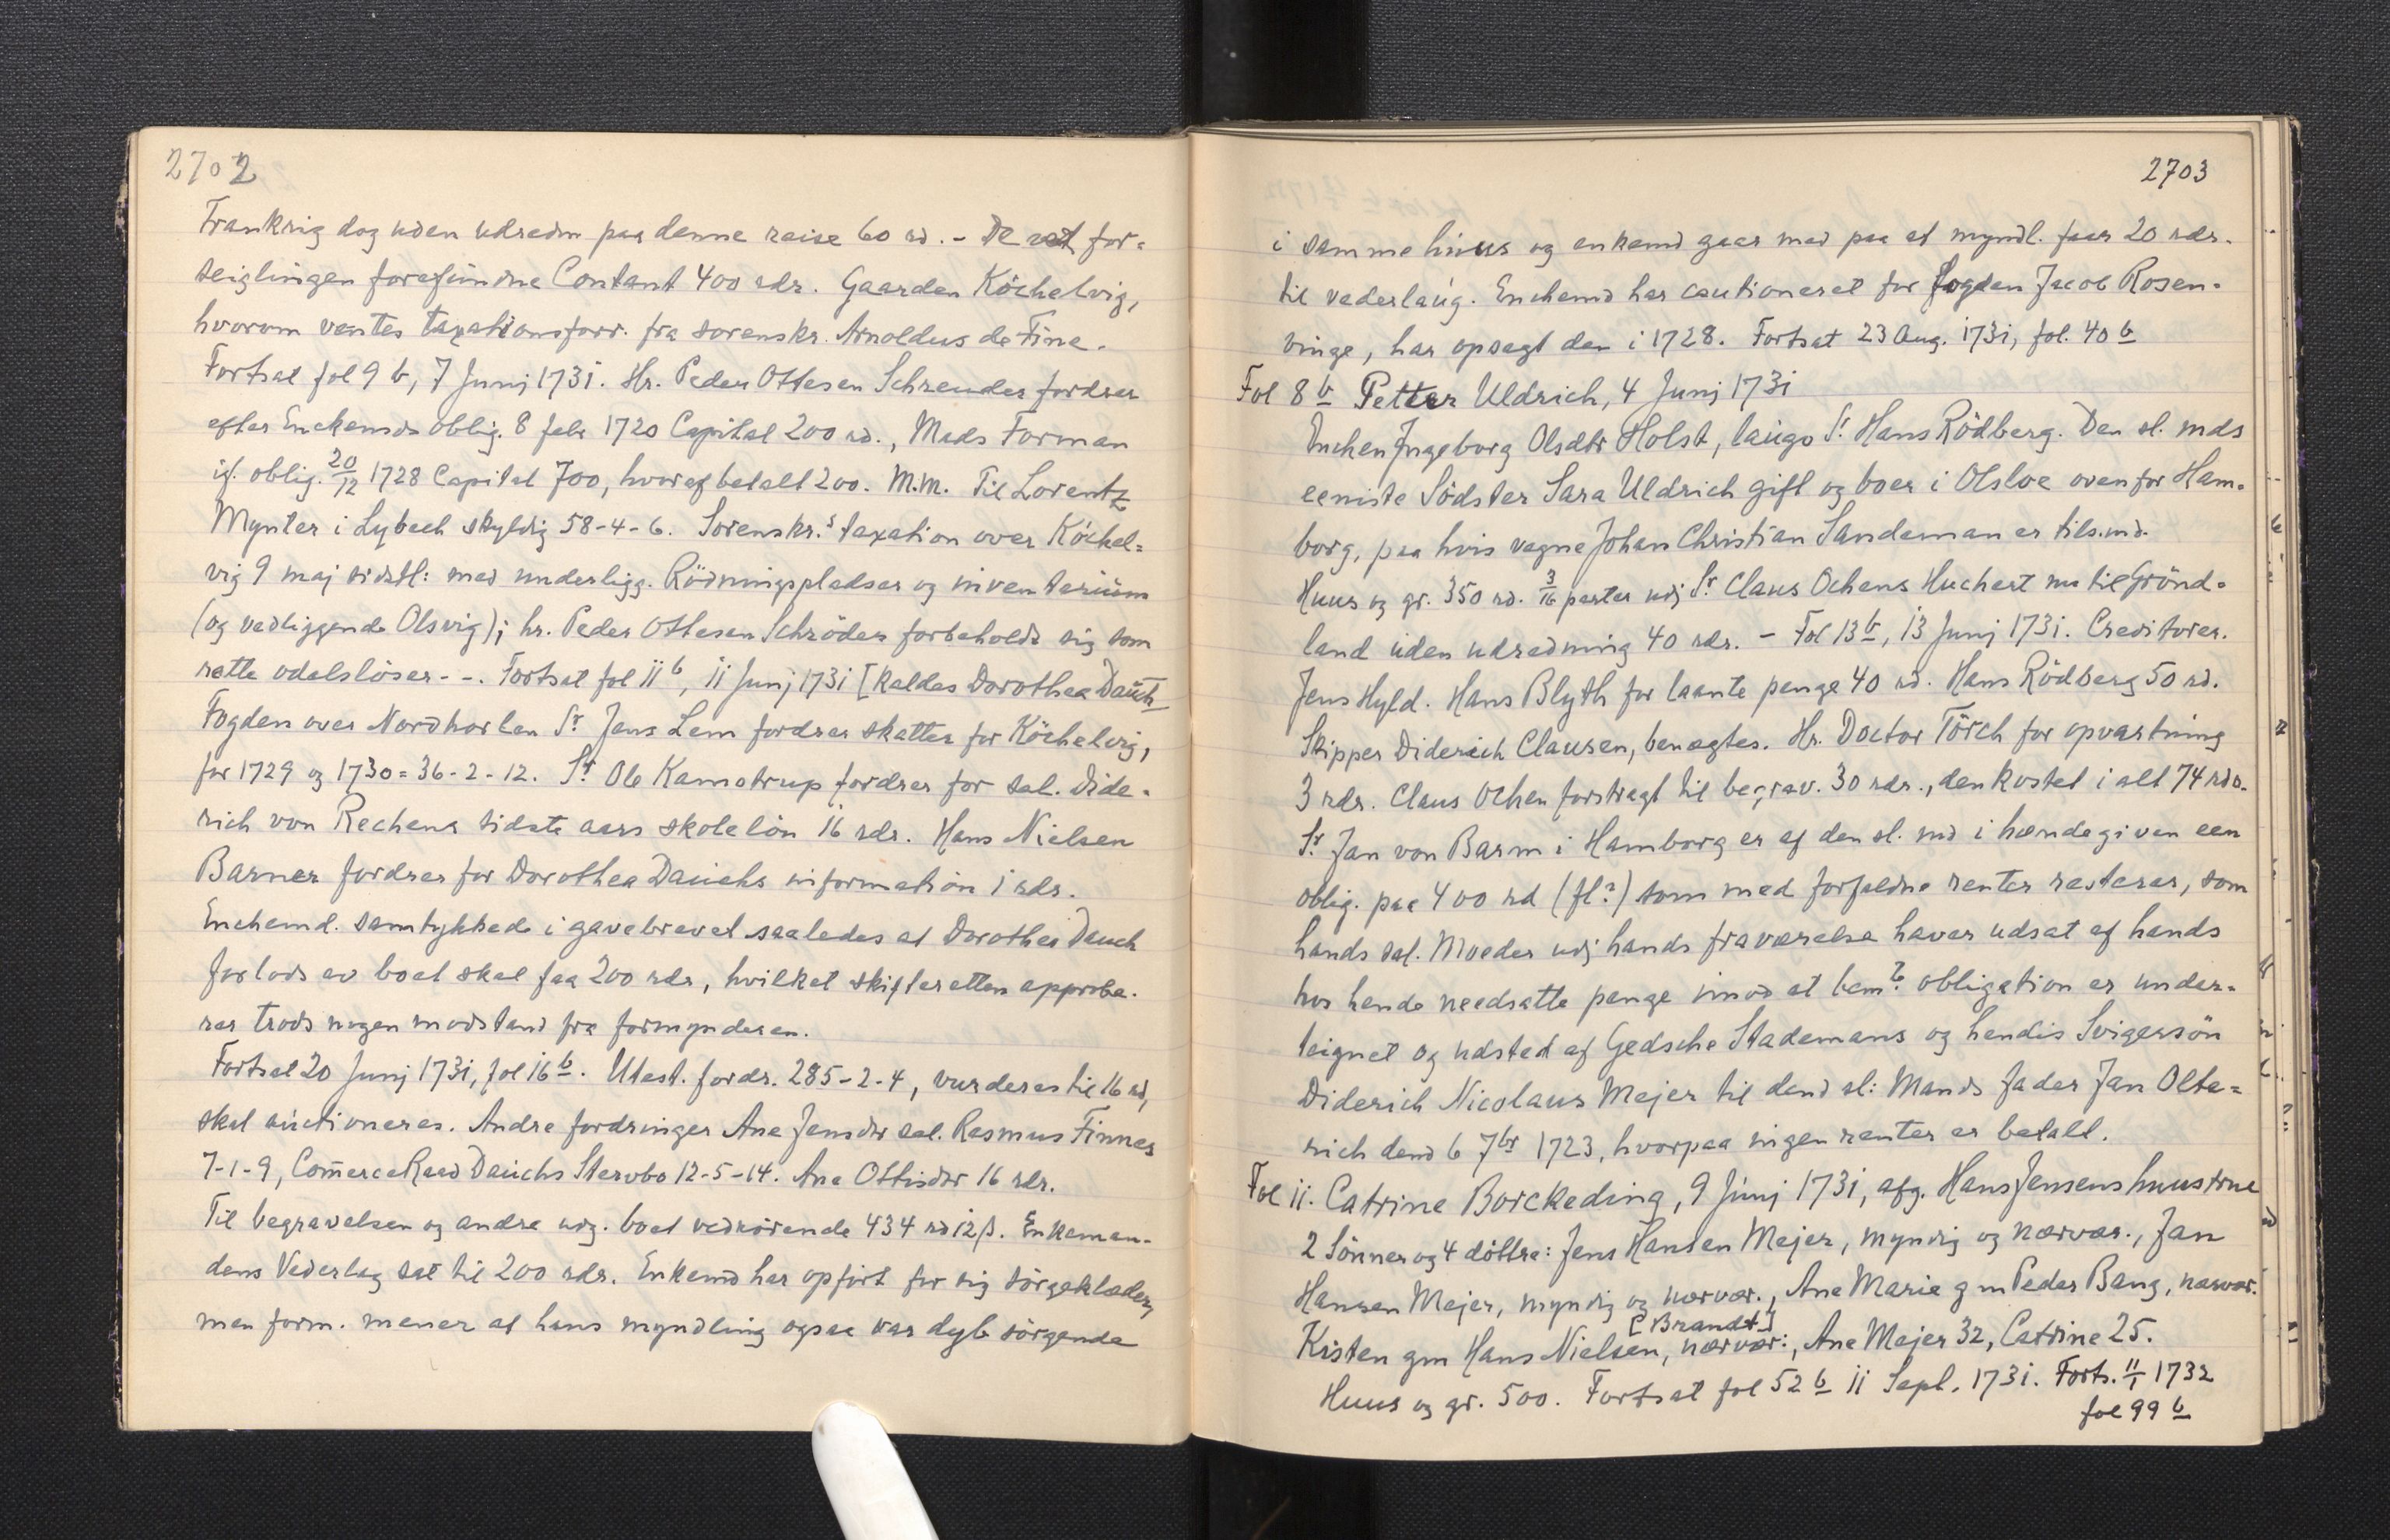 2702
Frankrig dog uden udredn paa denne reise 60 rd. - De ved for-
seiglingen forefundne Contant 400 rdr. Gaarden Köckelvig,
hvorom ventes taxationsforr. fra sorenskr. Arnoldus de Fine.
Fortsat fol 9 b, 7 Junj 1731. Hr. Peder Ottesen Schreuder fordrer
efter Enkemds oblig. 8 febr 1720 Capital 200 rd., Mads Forman
if. oblig. 20/12 1728 Capital 700, hvoraf betalt 200. M.m. Til Lorentz
Mynter i Lybech skyldig 58-4-6. Sorenskr.s taxation over Köckel=
vig 9 maj sidstl: med underligg. Rödningspladser og inventarium
(og vedliggende Olsvig); hr. Peder Ottesen Schröder forbeholdr sig som
rette odelslöser - -. Fortsat fol 11 b, 11 Junj 1731 [kaldes Dorothea Dauch
Fogden over Nordhorlen Sr Jens Lem fordrer skatter for Köckelvig,
for 1729 og 1730 = 36-2-12. Sr Ole Kamstrup fordrer for sal. Dide-
rich von Rechens sidste aars skolelön 16 rdr. Hans Nielsen
Barner fordrer for Dorothea Dauchs information 1 rdr.
Enchemd. samtykkede i gavebrevet saaledes at Dorothea Dauch
forlods av boet skal faa 200 rdr, hvilket skifteretten approbe-
rer trods nogen modstand fra formynderen.
Fortsat 20 Junj 1731, fol 16 b. Utest. fordr. 285-2-4, vurderes til 16 rd,
skal auctioneres. Andre fordringer Ane Jensdtr sal. Rasmus Finnes
7-1-9, Com̄erceRaad Dauchs Stervbo 12-5-14. Ane Ottisdtr 16 rdr.
Til begravelsen og andre udg. boet vedkörende 434 rd 12 β. Enkeman-
dens Vederlag sat til 200 rdr. Enkemd har opfört for sig sörgeklæder,
men form. mener at hans myndling ogsaa var dyb sörgende
2703
i samme huus og enkemd gaar med paa at myndl. faar 20 rdr.
til vederlaug. Enchemd har cautioneret for fogden Jacob Rosen-
vinge, har opsagt den i 1728. Fortsat 23 Aug. 1731, fol. 40 b
Fol 8 b Petter Uldrich, 4 Junj 1731
Enchen Ingeborg Olsdtr Holst, laugv Sr Hans Rödberg. Den sl. mds
eeniste Södster Sara Uldrich gift og boer i Olsloe oven for Ham-
borg, paa hvis vegne Johan Christian Sandeman er tils. md.
Huus og gr. 350 rd. 3/16 parter udj Sr Claus Ochens Huchert nu til Grönd-
land uden udredning 40 rdr. - Fol 13 b, 13 Junj 1731. Creditorer.
Jens Hyld. Hans Blyth for laante penge 40 rd. Hans Rödberg 50 rd.
Skipper Diderich Clausen, benægtes. Hr. Doctor Törch for opvartning
3 rdr. Claus Ochen forstragt til begrav. 30 rdr., den kostet i alt 74 rdr.
Sr Jan von Barm i Hamborg er af den sl. md i hænde given een
oblig. paa 400 rd (fl?) som med forfaldne renter resterer, som
hands sal. Moeder udj hands fraværelse haver udsat af hands
hos hende needsatte penge imod at bem.te obligation er under-
teignet og udsted af Gedsche Stademans og hendis Svigersön
Diderich Nicolaus Mejer til dend sl: Mands fader Jan Olte=
rich dend 6 7br 1723, hvorpaa ingen renter er betalt.
Fol 11. Catrine Borckeding, 9 Junj 1731, afg. Hans Jensens huustrue
2 Sönner og 4 döttre: Jens Hansen Mejer, myndig og nærvær., Jan
Hansen Mejer, myndig og nærvær., Ane Marie gm Peder Bang, nærvær.
[Brandt]
Kisten gm Hans Nielsen, nærvær:, Ane Mejer 32, Catrine 25.
Huus og gr. 500. Fortsat fol 52 b 11 Sept. 1731. Forts. 11/1 1732
fol 99 b